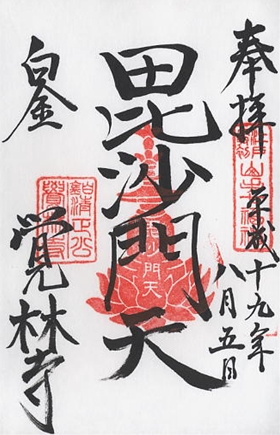 奉拝
平成十九年
八月五日
毘沙門天
白金
覚林寺